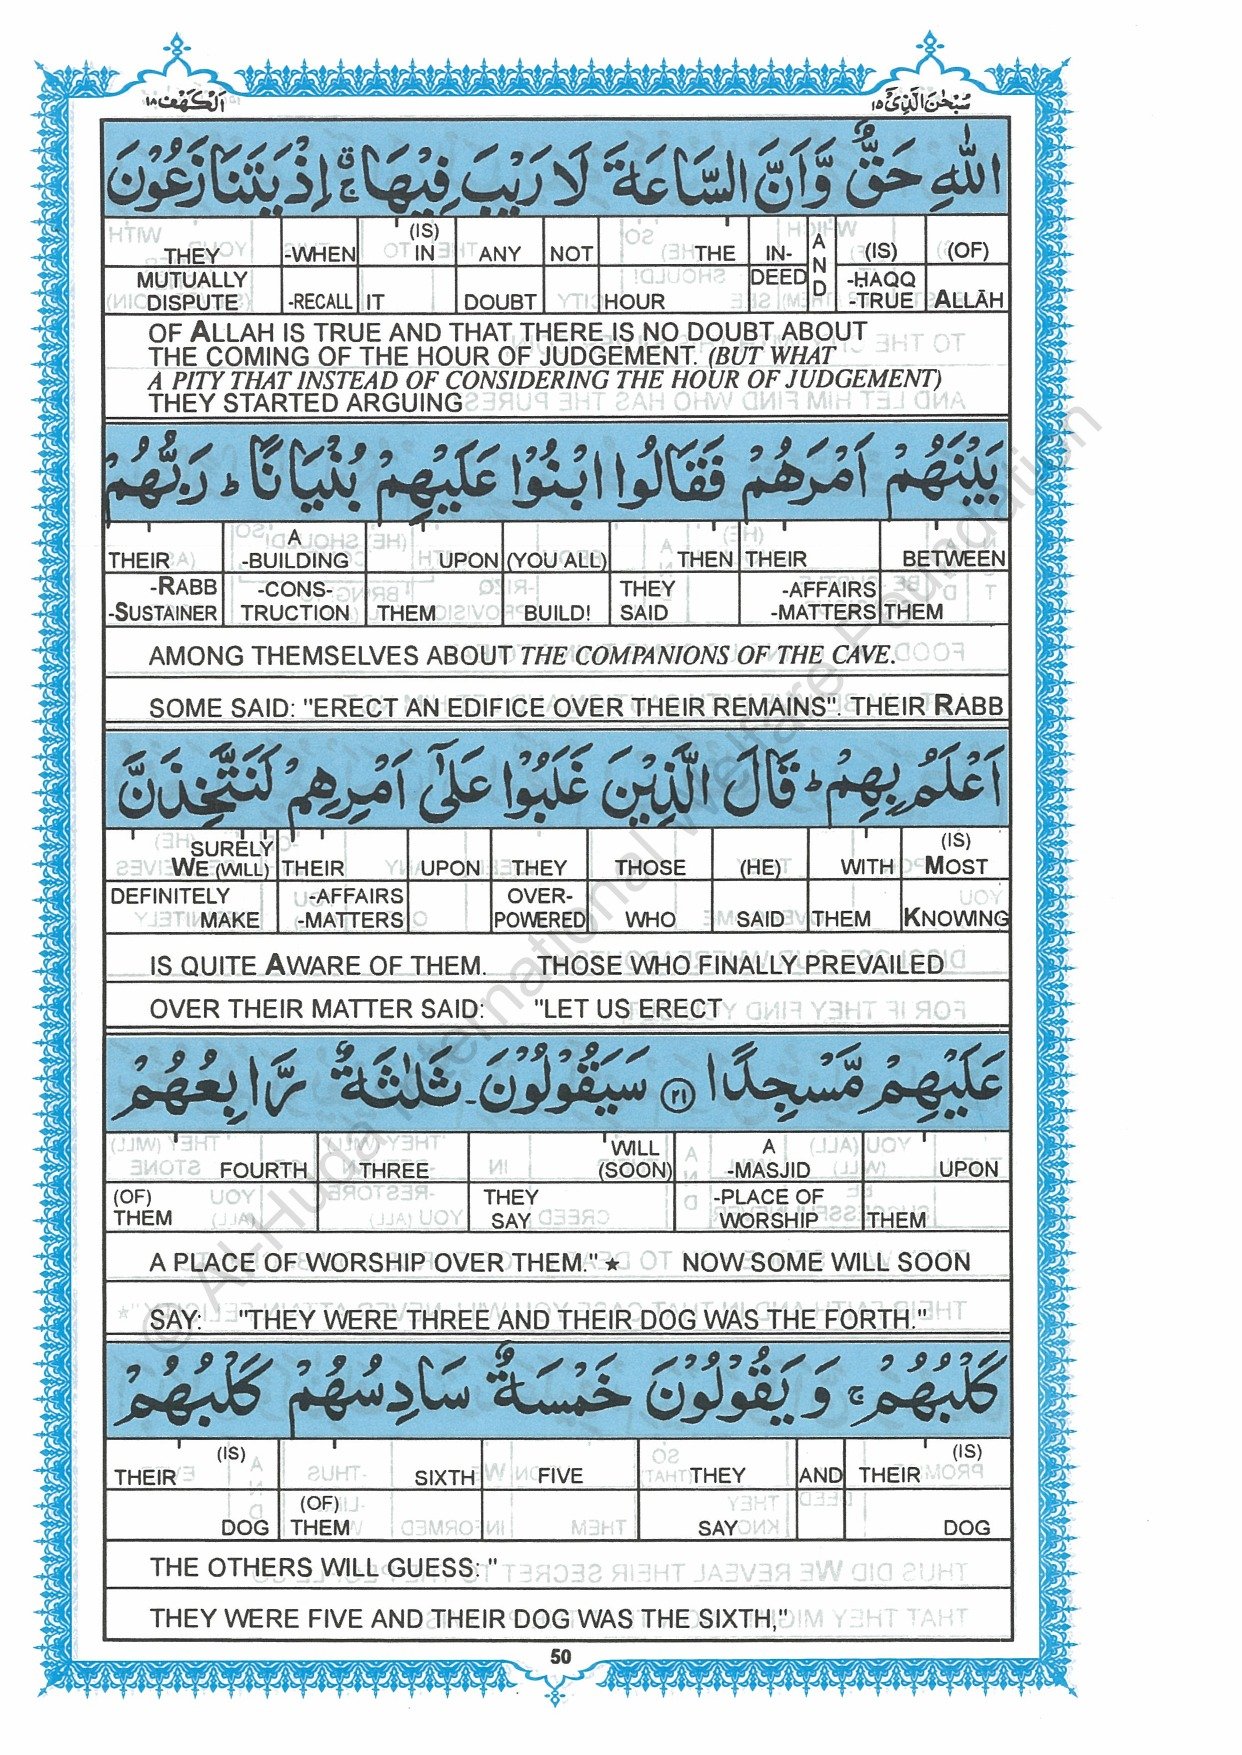 اَلْكَهْف ١٨
سُبْحٰنَ الَّذِىْٓ ١٥
اللّٰهِ حَقٌّ وَّاَنَّ السَّاعَةَ لَا رَيْبَ فِيْهَا ۚ اِذْ يَتَنَازَعُوْنَ
THEY -WHEN (IS) IN ANY NOT THE IN- AND (IS) (OF)
MUTUALLY DISPUTE -RECALL IT DOUBT HOUR DEED -HAQQ -TRUE ALLĀH
OF ALLAH IS TRUE AND THAT THERE IS NO DOUBT ABOUT
THE COMING OF THE HOUR OF JUDGEMENT. (BUT WHAT
A PITY THAT INSTEAD OF CONSIDERING THE HOUR OF JUDGEMENT)
THEY STARTED ARGUING
بَيْنَهُمْ اَمْرَهُمْ فَقَالُوا ابْنُوْا عَلَيْهِمْ بُنْيَانًا ؕ رَبُّهُمْ
THEIR A -BUILDING UPON (YOU ALL) THEN THEIR BETWEEN
-RABB -SUSTAINER -CONS- TRUCTION THEM BUILD! THEY SAID -AFFAIRS -MATTERS THEM
AMONG THEMSELVES ABOUT THE COMPANIONS OF THE CAVE.
SOME SAID: "ERECT AN EDIFICE OVER THEIR REMAINS". THEIR RABB
اَعْلَمُ بِهِمْ ؕ قَالَ الَّذِيْنَ غَلَبُوْا عَلٰٓى اَمْرِهِمْ لَنَتَّخِذَنَّ
SURELY WE (WILL) THEIR UPON THEY THOSE (HE) WITH (IS) MOST
DEFINITELY MAKE -AFFAIRS -MATTERS OVER- POWERED WHO SAID THEM KNOWING
IS QUITE AWARE OF THEM. THOSE WHO FINALLY PREVAILED
OVER THEIR MATTER SAID: "LET US ERECT
عَلَيْهِمْ مَّسْجِدًا ﴿٢١﴾ سَيَقُوْلُوْنَ ثَلٰثَةٌ رَّابِعُهُمْ
FOURTH THREE WILL (SOON) A -MASJID UPON
(OF) THEM THEY SAY -PLACE OF WORSHIP THEM
A PLACE OF WORSHIP OVER THEM." ★ NOW SOME WILL SOON
SAY: "THEY WERE THREE AND THEIR DOG WAS THE FORTH."
كَلْبُهُمْ ۚ وَيَقُوْلُوْنَ خَمْسَةٌ سَادِسُهُمْ كَلْبُهُمْ
THEIR (IS) SIXTH FIVE THEY AND THEIR (IS)
DOG (OF) THEM SAY DOG
THE OTHERS WILL GUESS: "
THEY WERE FIVE AND THEIR DOG WAS THE SIXTH,"
50
© Al-Huda International Welfare Foundation